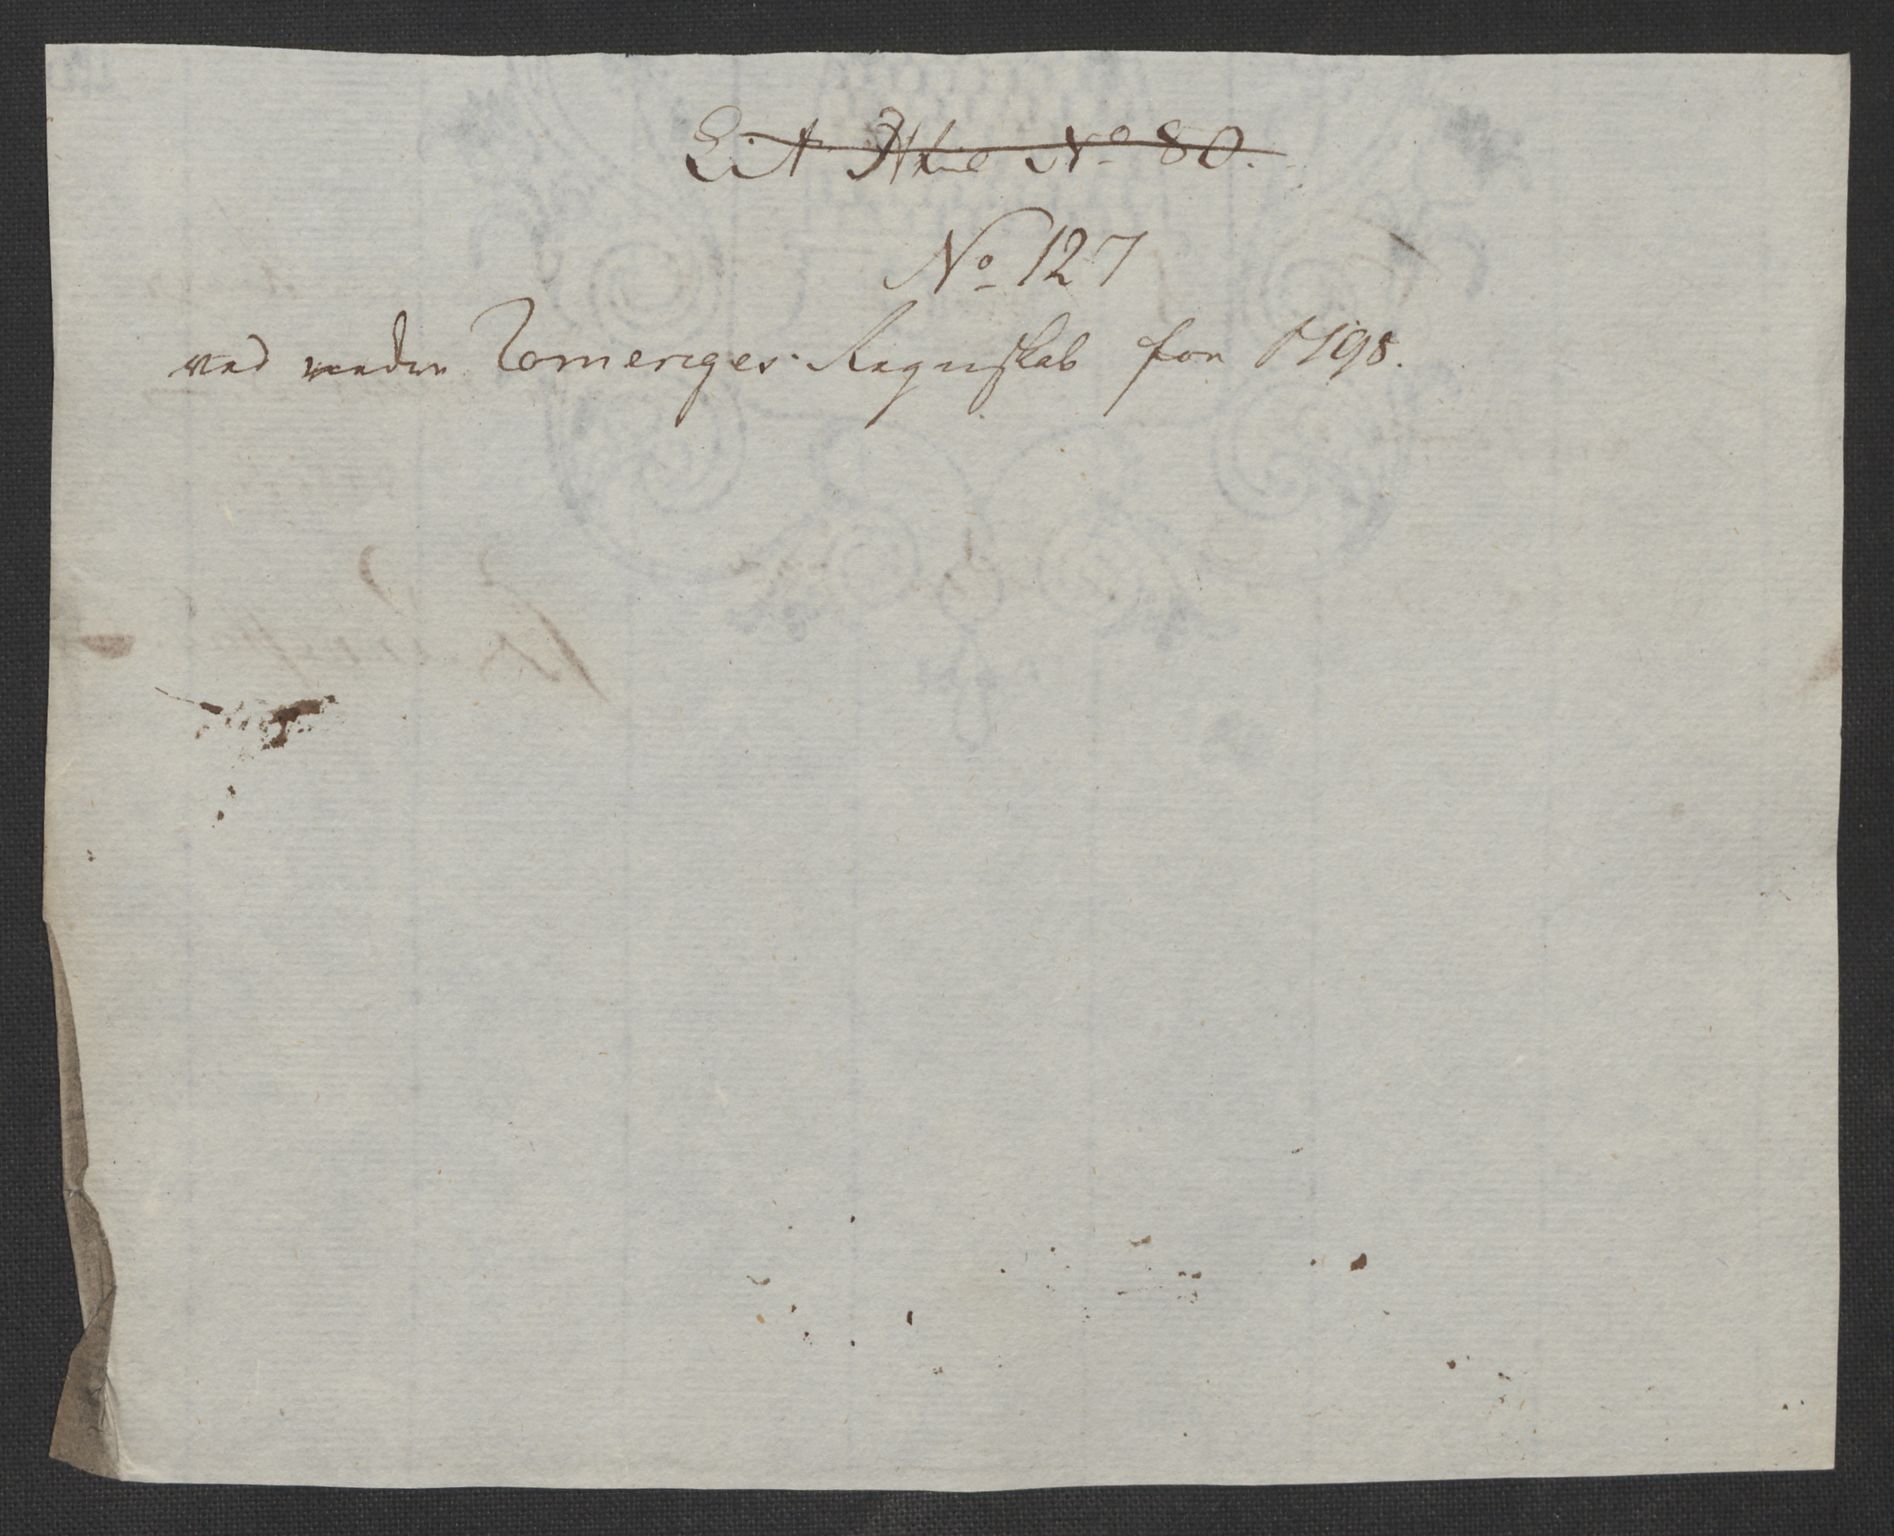 Lit No 80.
No 127
ved nedre Romeriges Regnskab for 1798.